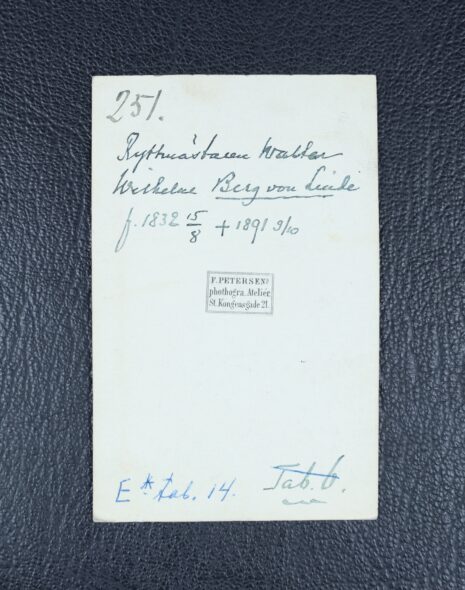 251.
Ryttmästaren Walter
Wilhelm Berg von Linde
f. 1832 15/8 + 1891 9/10
F. PETERSENS
phothogra. Atelier
St. Kongensgade 21.
E* tab. 14.
Tab. 6.